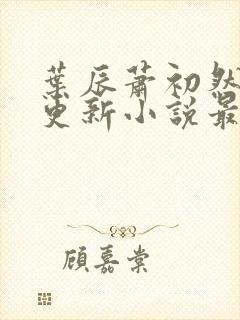 葉辰蕭初然
更新小說最
顧嘉棠